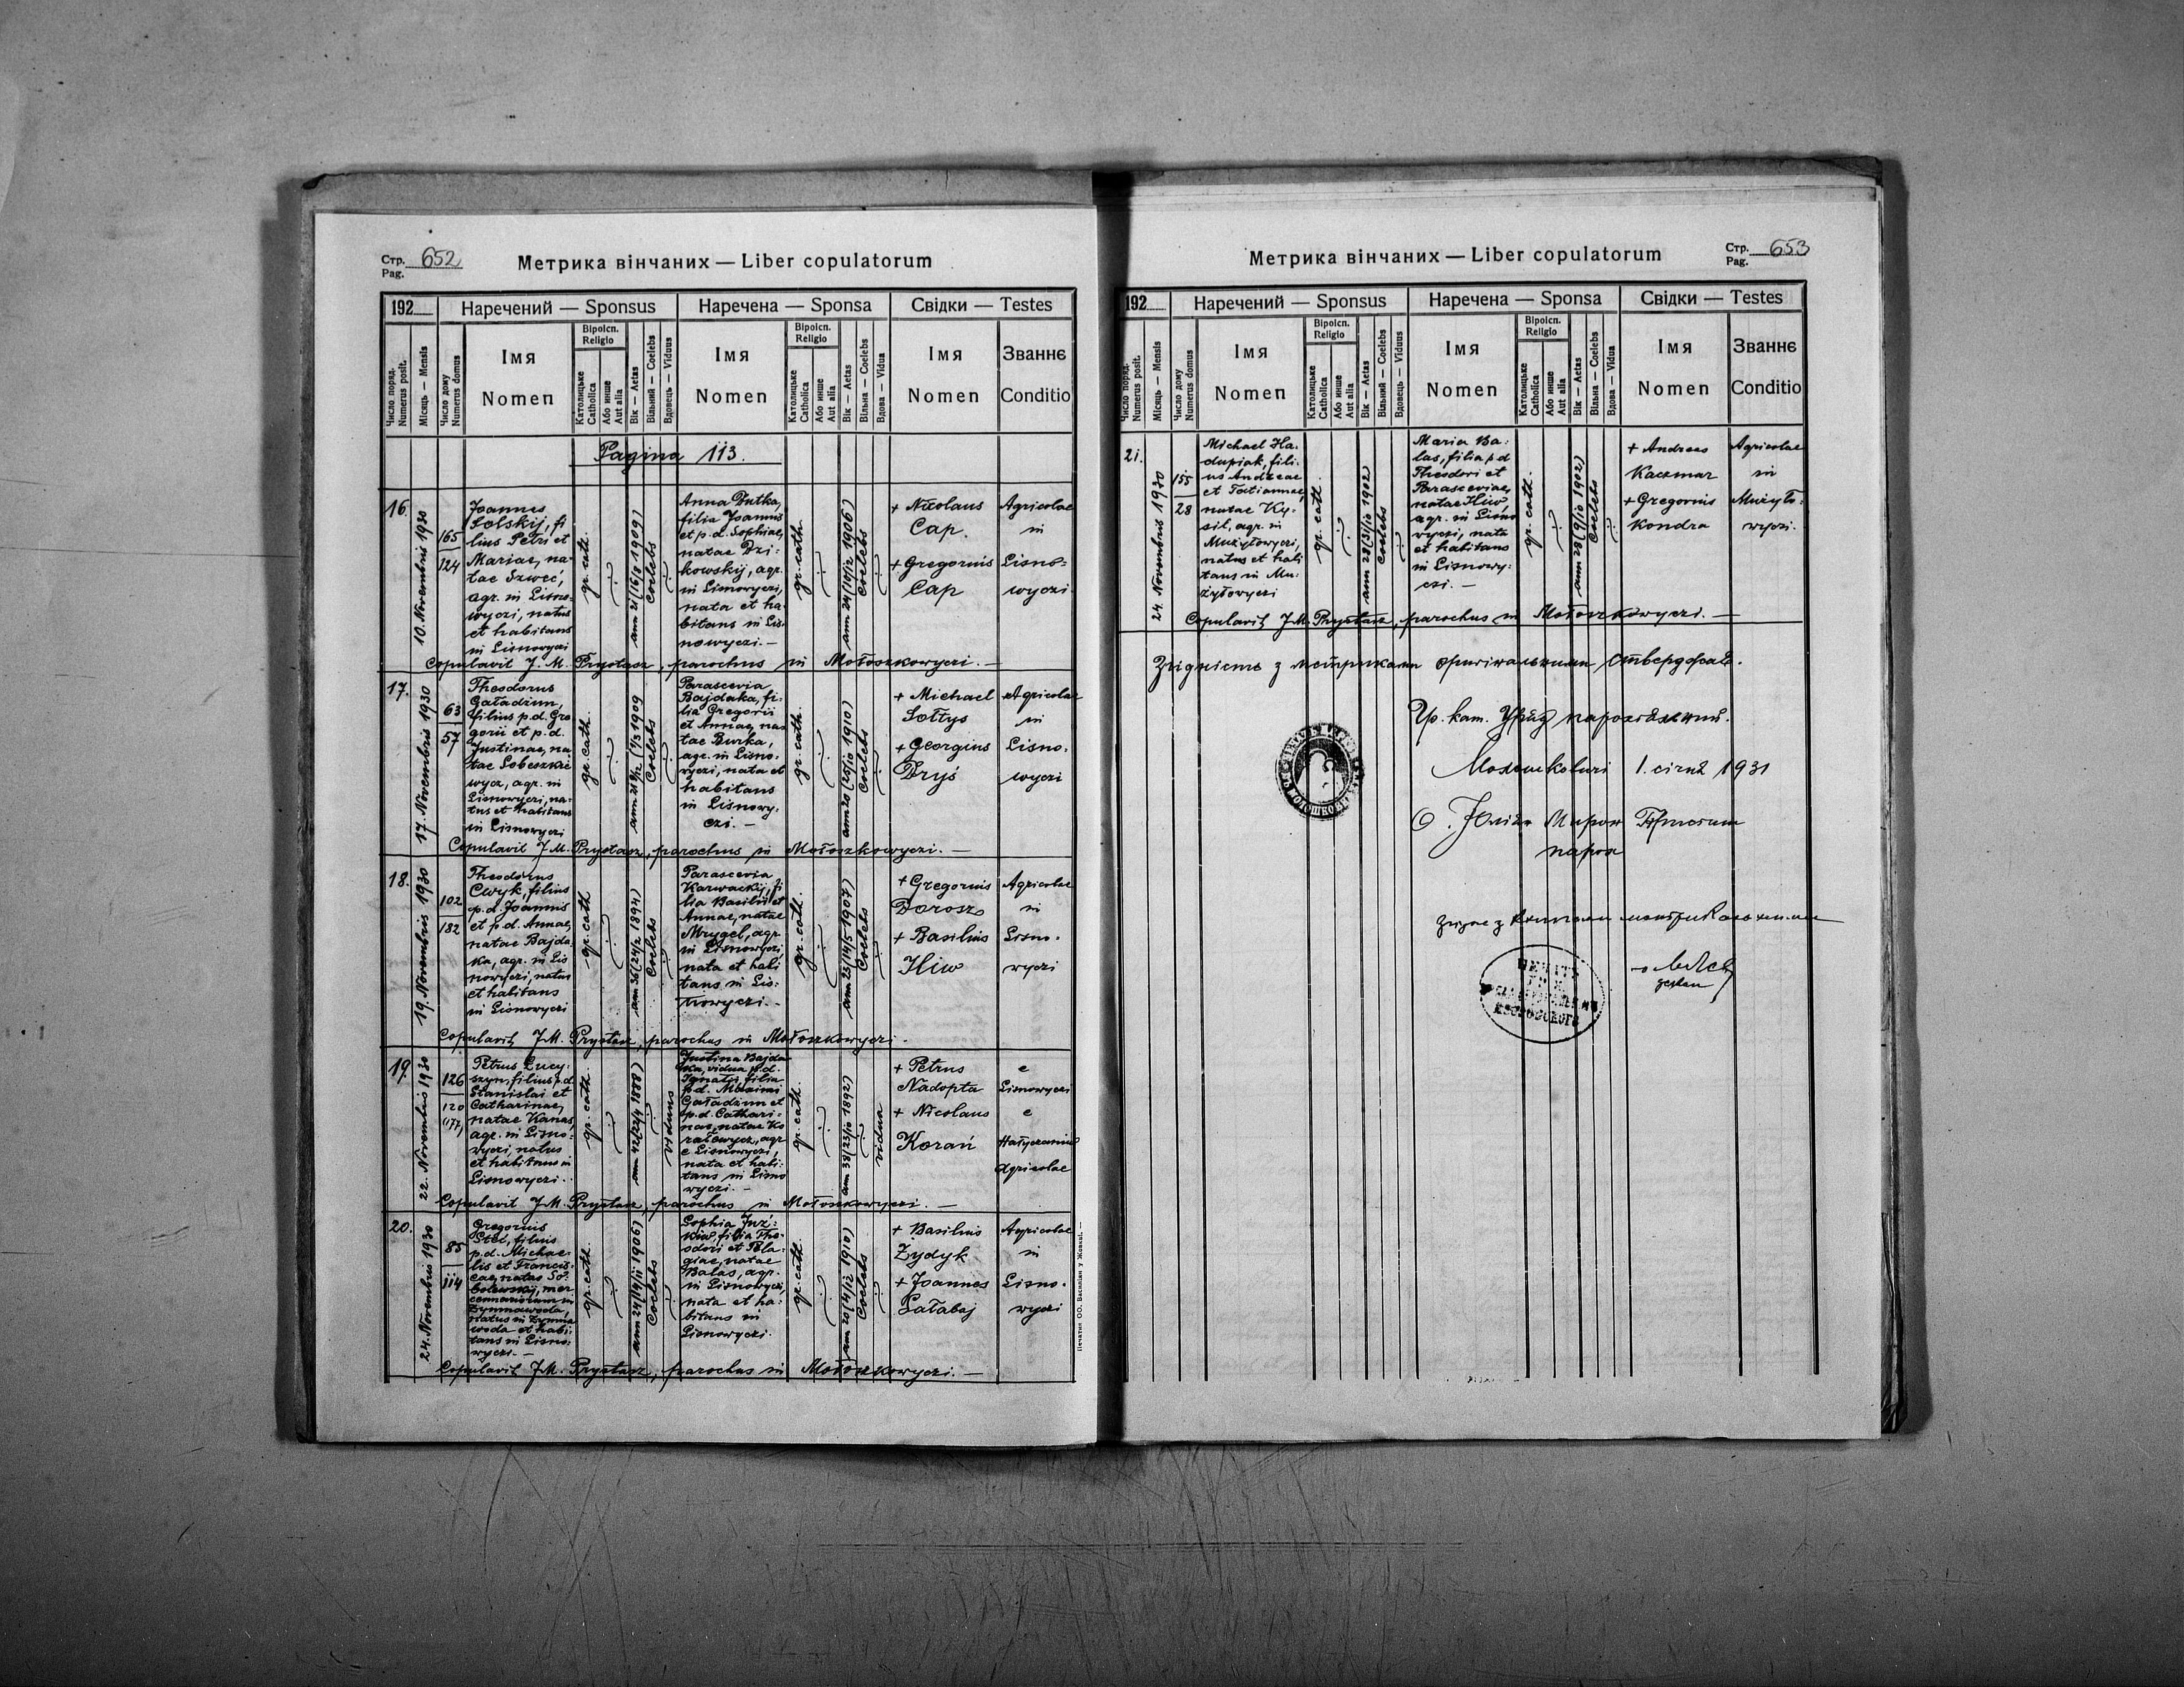 Стр. 652
Pag.
Метрика вінчаних — Liber copulatorum
192
Наречений — Sponsus
Наречена — Sponsa
Свідки — Testes
Число поряд.
Numerus posit.
Місяць — Mensis
Число дому
Numerus domus
Імя
Nomen
Віроісп.
Religio
Католицьке
Catholica
Або инше
Aut alia
Вік — Aetas
Вільний — Coelebs
Вдовець — Viduus
Імя
Nomen
Віроісп.
Religio
Католицьке
Catholica
Або инше
Aut alia
Вік — Aetas
Вільна — Coelebs
Вдова — Vidua
Імя
Nomen
Званнє
Conditio
Pagina 113.
16.
10. Novembris 1930
165
124
Joannes
Solskij, fi
lius Petri et
Mariae, na-
tae Szweć,
agr. in Lisno-
wyczi, natus
et habitans
in Lisnowyczi
gr. cath.
ann 21 (16/8 1909)
Coelebs
Anna Dutka,
filia Joannis
et p.d. Sophiae,
natae Dzi-
kowskij, agr.
in Lisnowyczi,
nata et ha-
bitans in Lis-
nowyczi. —
gr. cath.
ann 24 (10/12 1906)
Coelebs
+ Nicolaus
Cap.
+ Gregorius
Cap
Agricolae
in
Lisno-
wyczi
Copulavit J. M. Prystasz, parochus in Mołoszkowyczi. —
17.
17. Novembris 1930
63
57
Theodorus
Gaładżun,
filius p.d. Gre
gorii et p.d.
Justinae, na
tae Sobeszkie
wycz, agr. in
Lisnowyczi, na-
tus et habitans
in Lisnowyczi
gr. cath.
Coelebs
Parascevia
Bajdaka, fi-
lia Gregorii
et Annae, na-
tae Burka,
agr. in Lisno-
wyczi, nata et
habitans
in Lisnowy-
czi. —
gr. cath.
ann 20 (25/10 1910)
Coelebs
+ Michael
Sołtys
+ Georgius
Dryś
Agricolae
in
Lisno-
wyczi
Copulavit J. M. Prystasz, parochus in Mołoszkowyczi. —
18.
19. Novembris 1930
102
182
Theodorus
Cwyk, filius
p.d. Joannis
et p.d. Annae,
natae Bajda
ka, agr. in Lis
nowyczi, natus
et habitans
in Lisnowyczi
gr. cath
ann 36 (24/2 1894)
Coelebs
Parascevia
Karwackij, fi
lia Basilii et
Annae, natae
Mrygel, agr.
in Lisnowyczi,
nata et habi
tans in Lis-
nowyczi. -
gr. cath.
ann 23 (14/5 1907)
Coelebs
+ Gregorius
Dorosz
+ Basilius
Iliw
Agricolae
in
Lisno-
wyczi
Copulavit J. M. Prystasz, parochus in Mołoszkowyczi -
19.
22. Novembris 1930
126
120
(177)
Petrus Lucy-
szyn, filius p.d.
Stanislai et
Catharinae,
natae Kanas,
agr. in Lisno-
wyczi, natus
et habitans in
Lisnowyczi.
gr. cath.
ann 42 (2/4 1888)
viduus
Justina Bajda
ka, vidua p.d.
Ignatii, filia
p.d. Maximi
Gaładżun et
p.d. Cathari-
nae, natae Ko
rałowycz, agr
e Lisnowyczi,
nata et habi-
tans in Lisno
wyczi. —
gr. cath.
ann 38 (23/10 1892)
vidua
+ Petrus
Nadopta
+ Nicolaus
Korań
e
Lisnowyczi
e
Agricolae
Copulavit J. M. Prystasz, parochus in Mołoszkowyczi. —
20.
24. Novembris 1930
85
114
Gregorius
Stec, filius
p.d. Michae-
lis et Francis-
cae, natae So-
bolewskij, mer
cennariorum in
Zymnawoda,
natus in Zymna
woda et habi-
tans in Lisno-
wyczi. —
gr. cath.
ann 24 (19/11 1906)
Coelebs
Sophia Juź-
kiw, filia The-
odori et Pela-
giae, natae
Balas, agr.
in Lisnowyczi,
nata et ha-
bitans in
Lisnowyczi.
gr. cath.
ann 20 (4/12 1910)
Coelebs
+ Basilius
Żydyk
+ Joannes
Sałabaj
Agricolae
in
Lisno-
wyczi
Copulavit J. M. Prystasz, parochus in Mołoszkowyczi. —
Печатня ОО. Василіян у Жовкві. —
Стр. 653
Pag.
Метрика вінчаних — Liber copulatorum
192
Наречений — Sponsus
Наречена — Sponsa
Свідки — Testes
Число поряд.
Numerus posit.
Місяць — Mensis
Число дому
Numerus domus
Імя
Nomen
Віроісп.
Religio
Католицьке
Catholica
Або инше
Aut alia
Вік — Aetas
Вільний — Coelebs
Вдовець — Viduus
Імя
Nomen
Віроісп.
Religio
Католицьке
Catholica
Або инше
Aut alia
Вік — Aetas
Вільна — Coelebs
Вдова — Vidua
Імя
Nomen
Званнє
Conditio
21.
24. Novembris 1930
155
28
Michael Ha-
dupiak, fili-
us Andreae
et Tatiannae,
natae Ky-
sil, agr. in
Mużyłowyczi,
natus et habi
tans in Mu-
żyłowyczi
gr. cath.
ann 28 (31/10 1902)
Coelebs
Maria Ba-
las, filia p.d
Theodori et
Parasceviae,
natae Iliw,
agr. in Lisno
wyczi, nata
et habitans
in Lisnowy-
czi. —
gr. cath.
ann 28 (9/10 1902)
Coelebs
+ Andreas
Kaczmar
+ Gregorius
Kondra
Agricolae
in
Mużyło-
wyczi.
Copulavit J. M. Prystasz, parochus in Mołoszkowyczi. —
Згідність з метриками оригінальними стверджаю.
Гр. кат. Уряд парохіяльний.
Молошковичі 1. січня 1931
О. Юліян Мирон Присташ
парох
Згідне з книгами метрикальними
декан